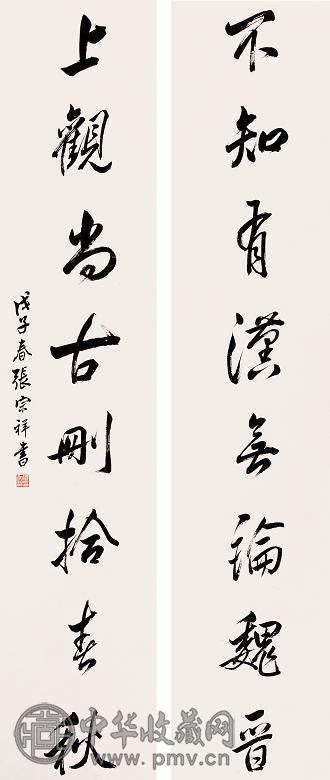 不知有漢無論魏晉
上觀尚古刪拾春秋
戊子春張宗祥書
中华收藏网
www.pmv.cn